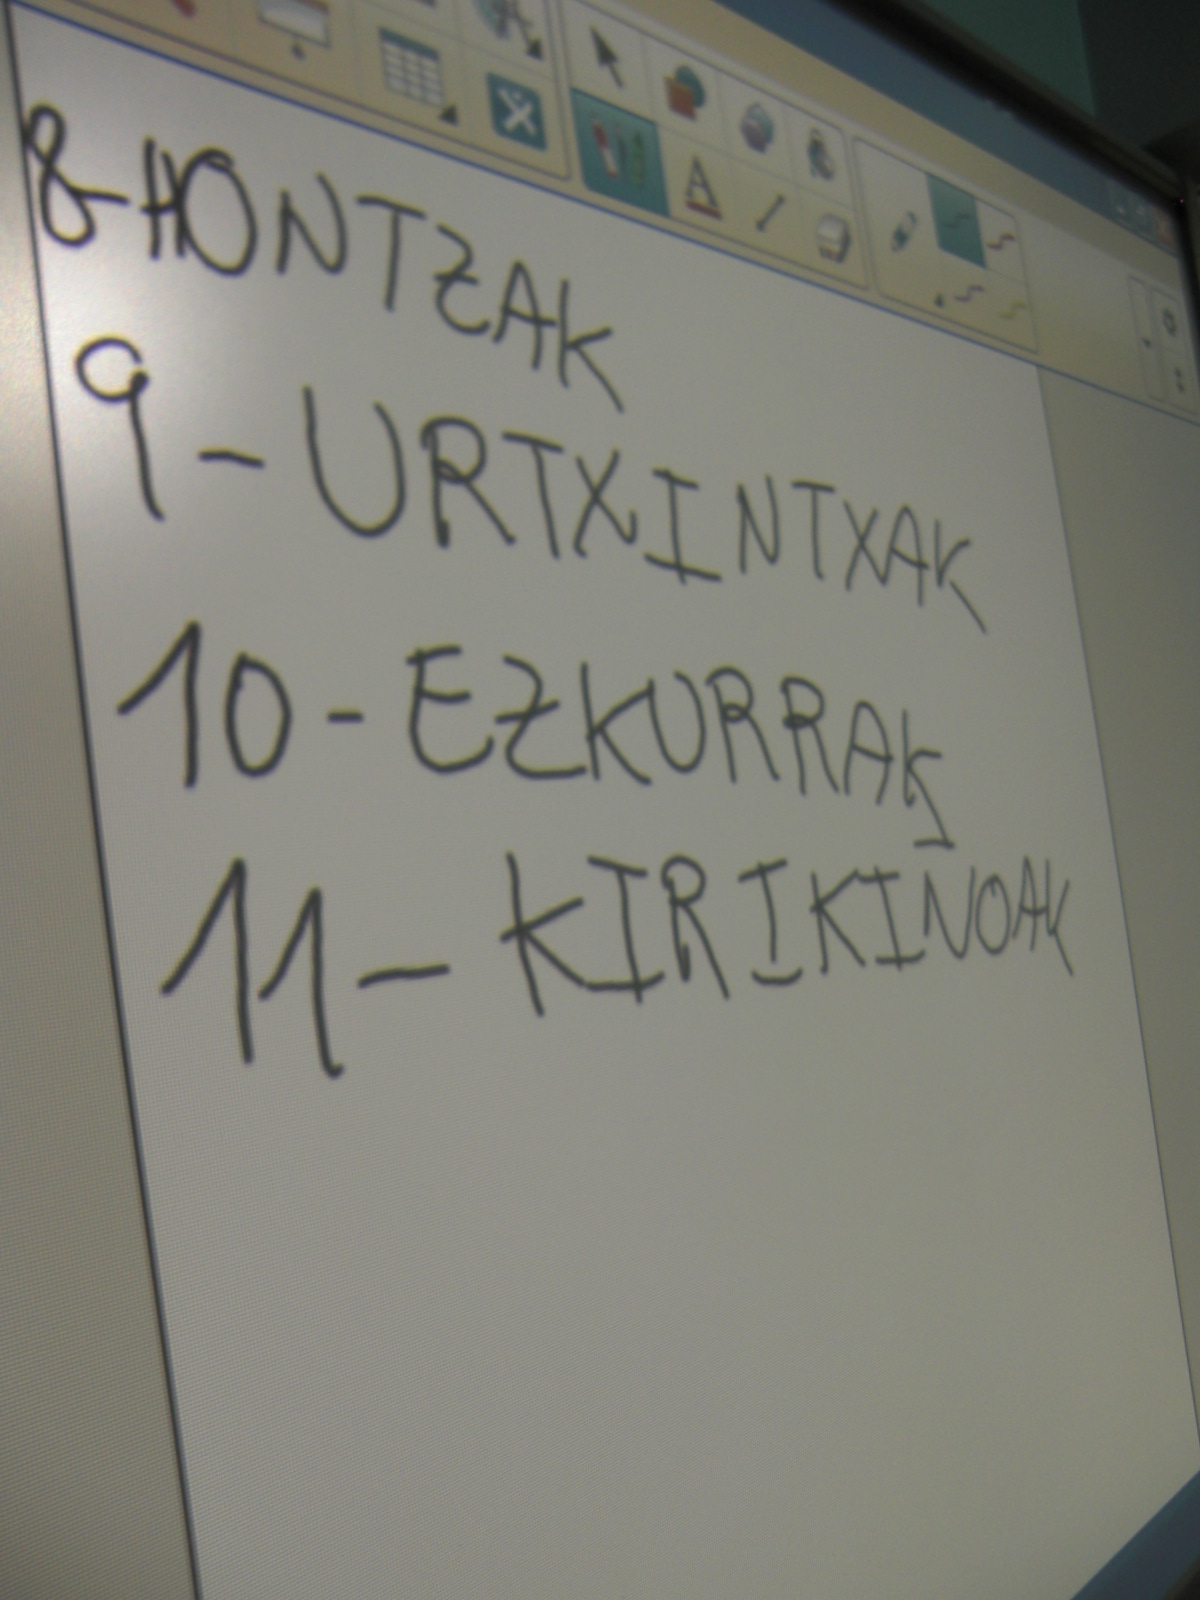 8-HONTZAK
9-URTXINTXAK
10-EZKURRAK
11-KIRIKINOAK